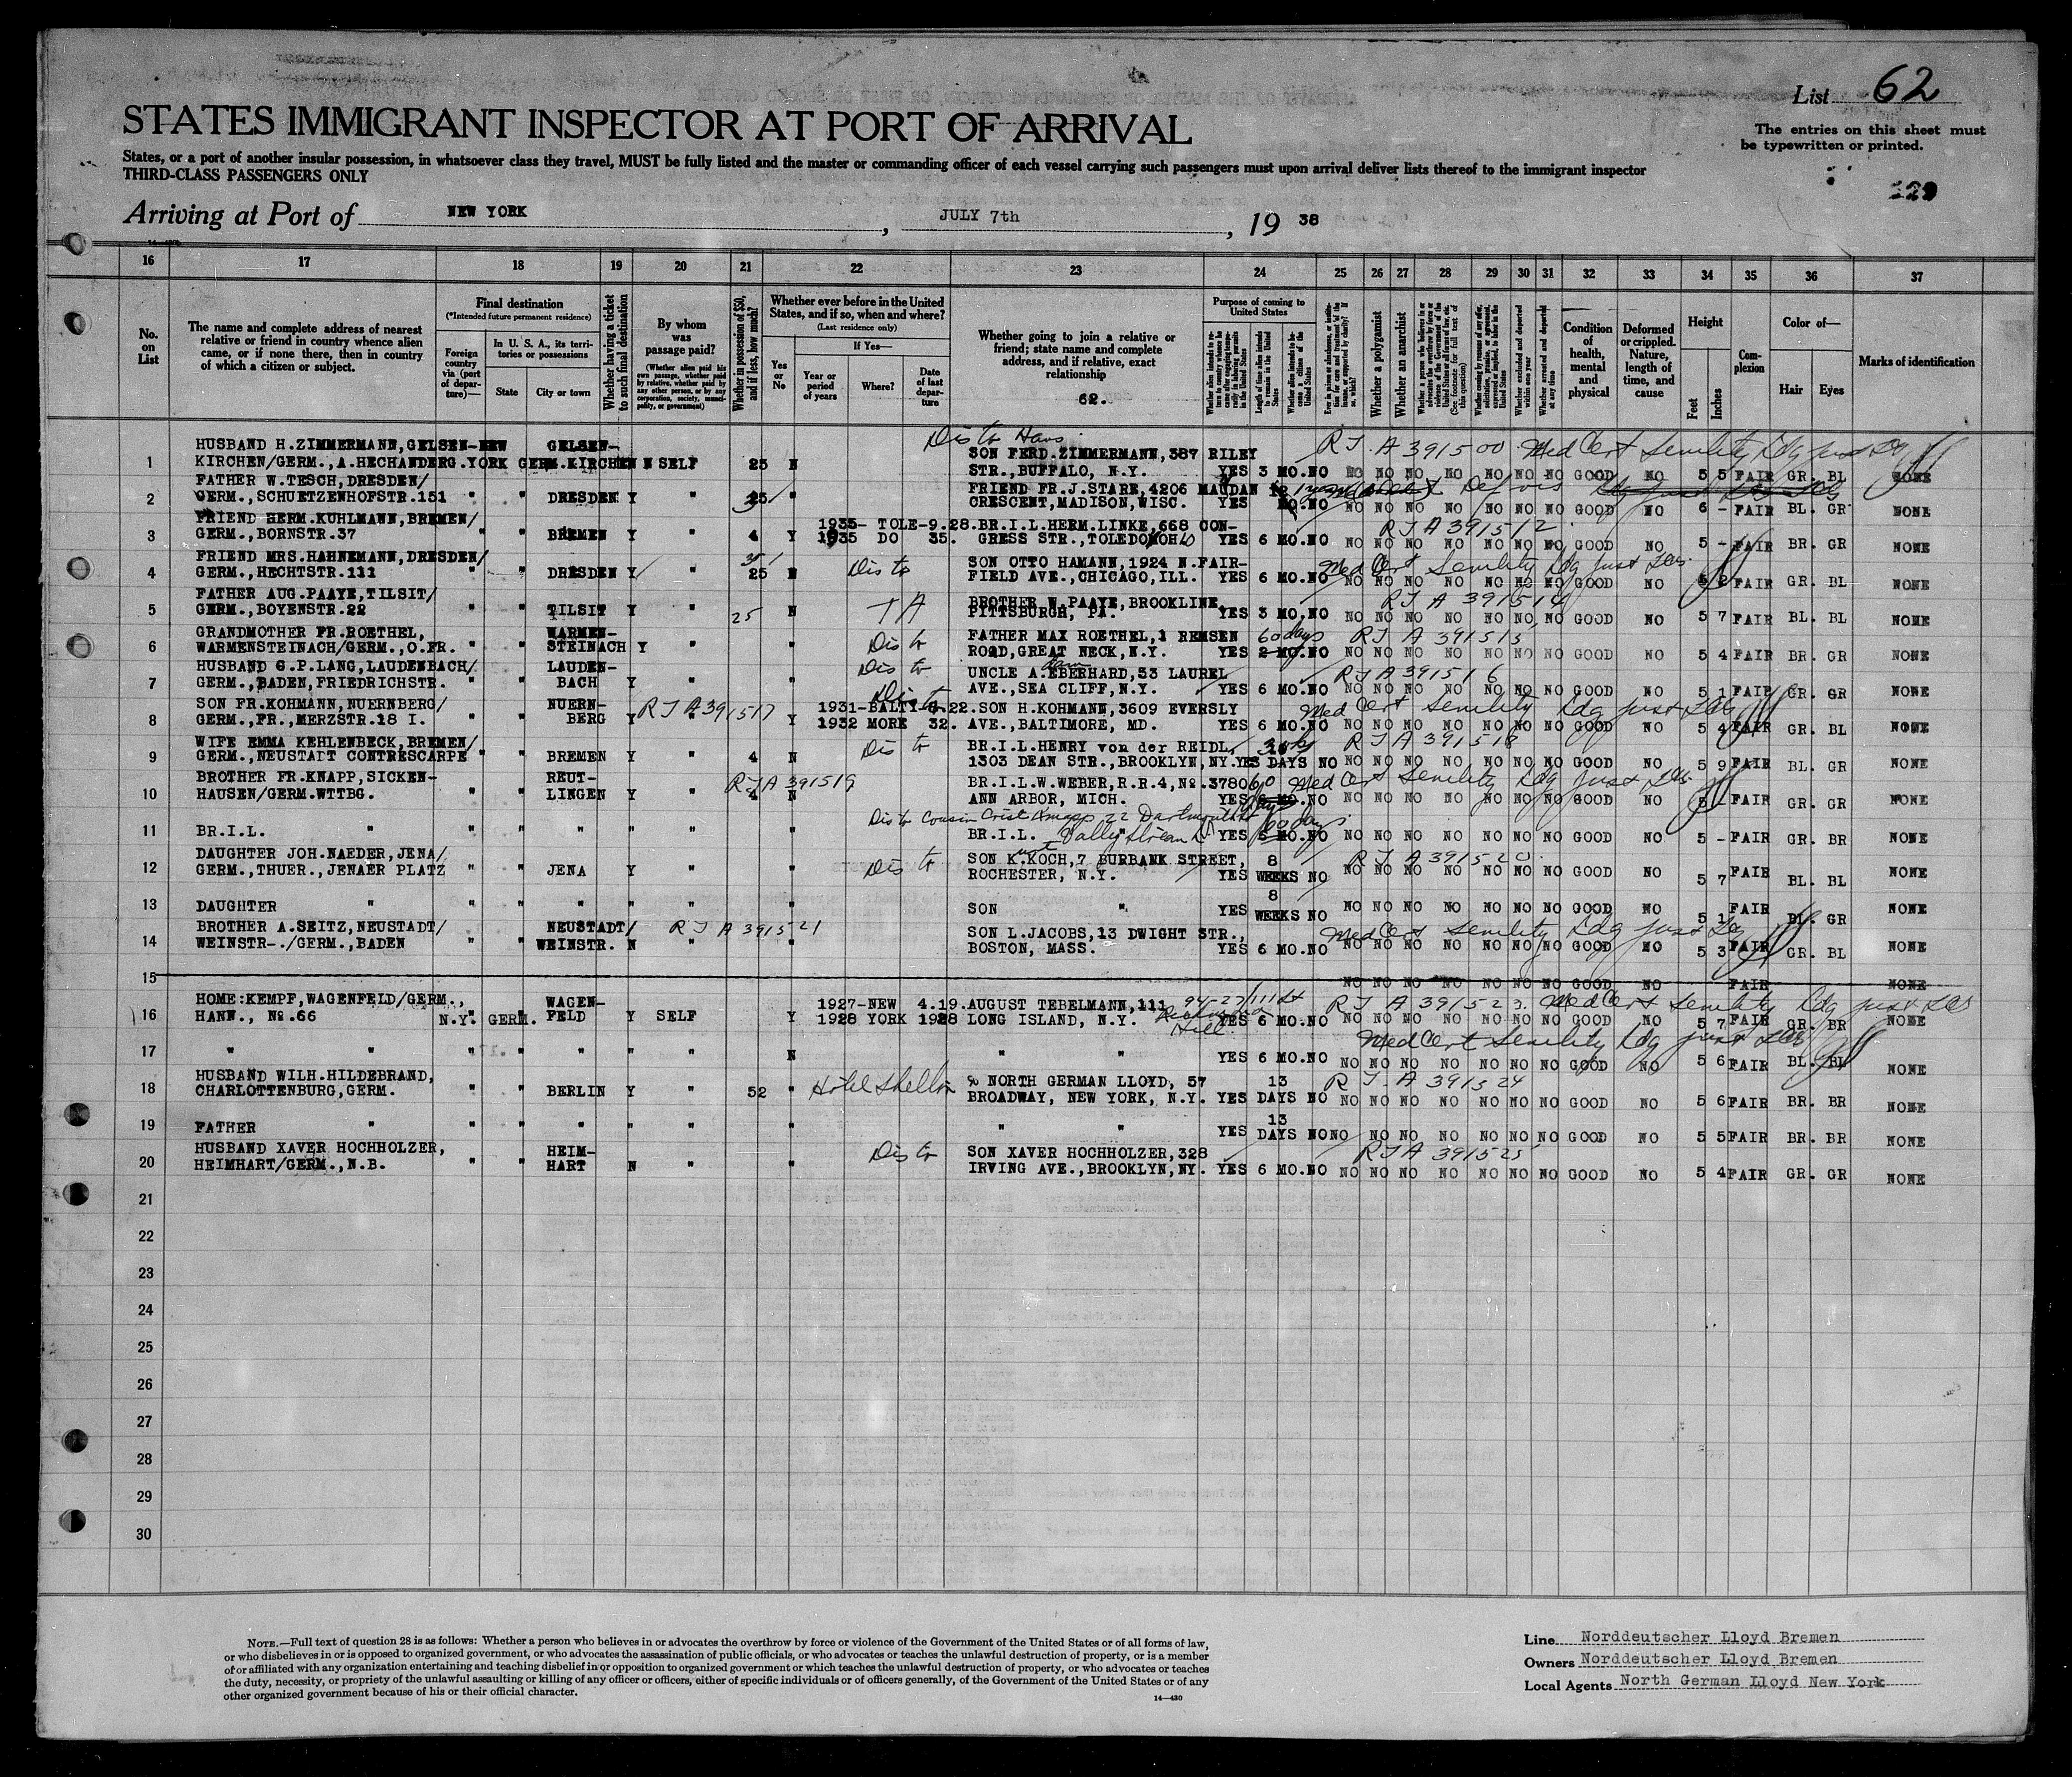 List 62
STATES IMMIGRANT INSPECTOR AT PORT OF ARRIVAL
The entries on this sheet must
be typewritten or printed.
States, or a port of another insular possession, in whatsoever class they travel, MUST be fully listed and the master or commanding officer of each vessel carrying such passengers must upon arrival deliver lists thereof to the immigrant inspector
THIRD-CLASS PASSENGERS ONLY
Arriving at Port of NEW YORK, JULY 7th, 19 38
16 17 18 19 20 21 22 23 24 25 26 27 28 29 30 31 32 33 34 35 36 37
No. on List
The name and complete address of nearest relative or friend in country whence alien came, or if none there, then in country of which a citizen or subject.
Final destination
(*Intended future permanent residence)
Foreign country via (port of departure)—
In U. S. A., its territories or possessions
State
City or town
Whether having a ticket to such final destination
By whom was passage paid?
(Whether alien paid his own passage, whether paid by relative, whether paid by any other person, or by any corporation, society, municipality, or government)
Whether in possession of $50, and if less, how much?
Whether ever before in the United States, and if so, when and where?
(Last residence only)
Yes or No
If Yes—
Year or period of years
Where?
Date of last departure
Whether going to join a relative or friend; state name and complete address, and if relative, exact relationship
62.
Purpose of coming to United States
Length of time alien intends to remain in the United States
Whether a polygamist
Whether an anarchist
Whether excluded and deported within one year
Whether arrested and deported at any time
Condition of health, mental and physical
Deformed or crippled. Nature, length of time, and cause
Height
Feet
Inches
Complexion
Color of—
Hair
Eyes
Marks of identification
Dis to Hans RJ. A 391500 Med Cert Senility
HUSBAND H.ZIMMERMANN,GELSEN-NEW GELSEN- SON FERD.ZIMMERMANN,387 RILEY
1 KIRCHEN/GERM.,A.HECHANDERG.YORK GERM.KIRCHEN N SELF 25 N STR.,BUFFALO, N.Y. YES 3 MO.NO NO NO NO NO NO NO NO GOOD NO 5 5 FAIR GR. BL NONE
FATHER W.TESCH,DRESDEN/ FRIEND FR.J.STARE,4206 MANDAN
2 GERM.,SCHUETZENHOFSTR.151 " " DRESDEN Y " 25 " CRESCENT,MADISON,WISC. YES MO.NO NO NO NO NO NO NO NO GOOD NO 6 - FAIR BL. GR NONE
FRIEND HERM.KUHLMANN,BREMEN/ 1935- TOLE-9.28.BR.I.L.HERM.LINKE,668 CON- RJ A 391512
3 GERM.,BORNSTR.37 " " BREMEN Y " 4 Y 1935 DO 35. GRESS STR.,TOLEDO,OHIO YES 6 MO.NO NO NO NO NO NO NO NO GOOD NO 5 - FAIR BR. GR NONE
FRIEND MRS.HAHNEMANN,DRESDEN/ Dis to SON OTTO HAMANN,1924 N.FAIR- Med Cert Senility
4 GERM.,HECHTSTR.111 " " DRESDEN Y " 25 N FIELD AVE.,CHICAGO,ILL. YES 6 MO.NO NO NO NO NO NO NO NO GOOD NO 5 2 FAIR GR. BL NONE
FATHER AUG.PAAYE,TILSIT/ BROTHER W.PAAYE,BROOKLINE, RJ A 391514
5 GERM.,BOYENSTR.22 " " TILSIT Y " 25 N TA PITTSBURGH, PA. YES 3 MO.NO NO NO NO NO NO NO NO GOOD NO 5 7 FAIR BL. BL NONE
GRANDMOTHER FR.ROETHEL, WARMEN- Dis to FATHER MAX ROETHEL,1 REMSEN 60 days RJ A 391515
6 WARMENSTEINACH/GERM.,O.FR. " " STEINACH Y " " ROAD,GREAT NECK,N.Y. YES 2 MO.NO NO NO NO NO NO NO NO GOOD NO 5 4 FAIR BR. GR NONE
HUSBAND G.P.LANG,LAUDENBACH/ LAUDEN- Dis to UNCLE A.EBERHARD,53 LAUREL RJ A 391516
7 GERM.,BADEN,FRIEDRICHSTR. " " BACH Y " " AVE.,SEA CLIFF,N.Y. YES 6 MO.NO NO NO NO NO NO NO NO GOOD NO 5 1 FAIR GR. GR NONE
SON FR.KOHMANN,NUERNBERG/ NUERN- RJ A 391517 Dis to 1931-BALTI-5.22.SON H.KOHMANN,3609 EVERSLY Med Cert Senility
8 GERM.,FR.,MERZSTR.18 I. " " BERG Y " Y 1932 MORE 32. AVE.,BALTIMORE, MD. YES 6 MO.NO NO NO NO NO NO NO NO GOOD NO 5 4 FAIR GR. BL NONE
WIFE EMMA KEHLENBECK,BREMEN/ Dis to BR.I.L.HENRY von der REIDL, RJ A 391518
9 GERM.,NEUSTADT CONTRESCARPE " " BREMEN Y " 4 N 1303 DEAN STR.,BROOKLYN,NY.YES DAYS NO NO NO NO NO NO NO NO GOOD NO 5 9 FAIR BL. GR NONE
BROTHER FR.KNAPP,SICKEN- REUT- RJ A 391519 BR.I.L.W.WEBER,R.R.4,No.3780 60 Med Cert Senility
10 HAUSEN/GERM.WTTBG. " " LINGEN Y " 4 N ANN ARBOR, MICH. YES 6 MO.NO NO NO NO NO NO NO NO GOOD NO 5 - FAIR GR. GR NONE
Dis to Cousin Crist Knapp 22 Dartmouth St 60 days
11 BR.I.L. " " " " " " " BR.I.L. " YES 6 MO.NO NO NO NO NO NO NO NO GOOD NO 5 - FAIR GR. BR NONE
DAUGHTER JOH.NAEDER,JENA/ Dis to SON K.KOCH,7 BURBANK STREET, 8 RJ A 391520
12 GERM.,THUER.,JENAER PLATZ " " JENA Y " " ROCHESTER, N.Y. YES WEEKS NO NO NO NO NO NO NO NO GOOD NO 5 7 FAIR BL. BL NONE
13 DAUGHTER " " " " " " " SON " YES 8 WEEKS NO NO NO NO NO NO NO NO GOOD NO 5 1 FAIR BL. GR NONE
BROTHER A.SEITZ,NEUSTADT/ NEUSTADT/ RJ A 391521 SON L.JACOBS,13 DWIGHT STR., Med Cert Senility
14 WEINSTR-./GERM.,BADEN " " WEINSTR. N " " BOSTON, MASS. YES 6 MO.NO NO NO NO NO NO NO NO GOOD NO 5 3 FAIR GR. BL NONE
15 NO NO NO NO NO NO NO GOOD NO FAIR NONE
HOME:KEMPF,WAGENFELD/GERM., WAGEN- 1927-NEW 4.19.AUGUST TEBELMANN,111 94-27/111 St RJ A 391523. Med Cert Senility
16 HANN., No.66 N.Y. GERM. FELD Y SELF Y 1928 YORK 1928 LONG ISLAND, N.Y. Richmond Hill YES 6 MO.NO NO NO NO NO NO NO NO GOOD NO 5 7 FAIR GR. BR NONE
Med Cert Senility
17 " " " " " " " N " " YES 6 MO.NO NO NO NO NO NO NO NO GOOD NO 5 6 FAIR BL. BL NONE
HUSBAND WILH.HILDEBRAND, % NORTH GERMAN LLOYD, 57 13 RJ. A 391524
18 CHARLOTTENBURG,GERM. " " BERLIN Y " 52 " Hotel Shelton BROADWAY, NEW YORK, N.Y. YES DAYS NO NO NO NO NO NO NO NO GOOD NO 5 6 FAIR BR. BR NONE
19 FATHER " " " " " " " " " " YES 13 DAYS NO NO NO NO NO NO NO NO GOOD NO 5 5 FAIR BR. BR NONE
HUSBAND XAVER HOCHHOLZER, HEIM- Dis to SON XAVER HOCHHOLZER,328 RJ A 391525
20 HEIMHART/GERM.,N.B. " " HART N " " IRVING AVE.,BROOKLYN,NY. YES 6 MO.NO NO NO NO NO NO NO NO GOOD NO 5 4 FAIR GR. GR NONE
21
22
23
24
25
26
27
28
29
30
NOTE.—Full text of question 28 is as follows: Whether a person who believes in or advocates the overthrow by force or violence of the Government of the United States or of all forms of law,
or who disbelieves in or is opposed to organized government, or who advocates the assassination of public officials, or who advocates or teaches the unlawful destruction of property, or is a member
of or affiliated with any organization entertaining and teaching disbelief in or opposition to organized government or which teaches the unlawful destruction of property, or who advocates or teaches
the duty, necessity, or propriety of the unlawful assaulting or killing of any officer or officers, either of specific individuals or of officers generally, of the Government of the United States or of any
other organized government because of his or their official character.
14—430
Line Norddeutscher Lloyd Bremen
Owners Norddeutscher Lloyd Bremen
Local Agents North German Lloyd New York